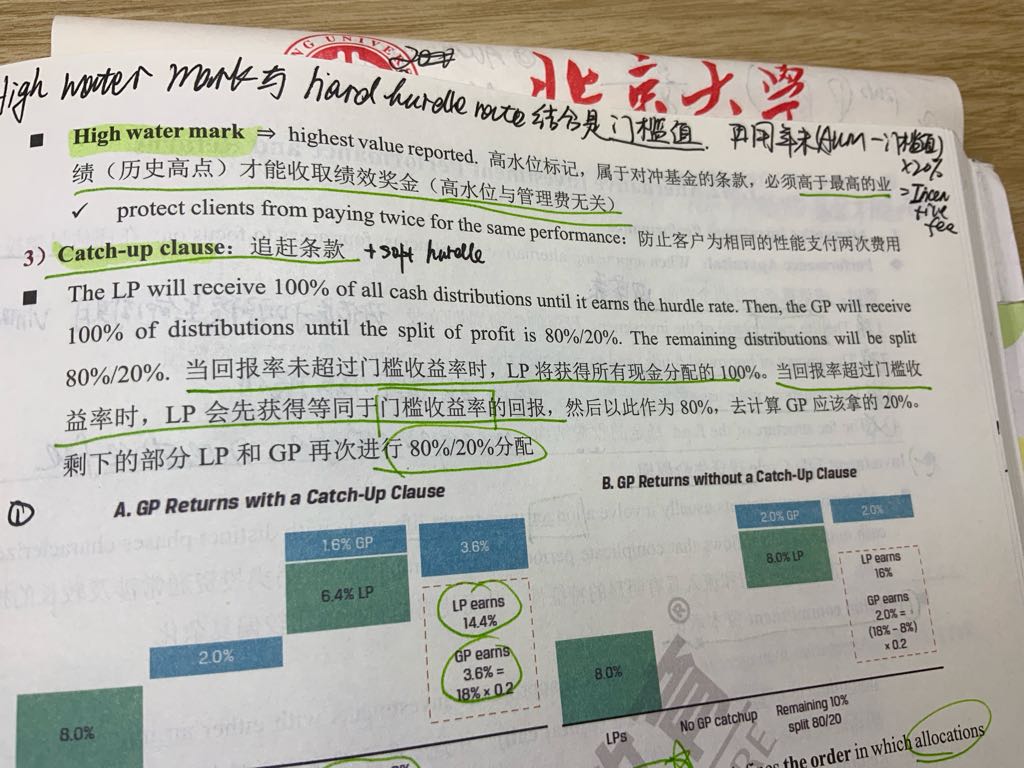 北京大学
High water mark与 hard hurdle rate结合是门槛值. 再用年末(AUM-门槛值)
×20%
= Incen
tive
fee
■ High water mark ⇒ highest value reported. 高水位标记，属于对冲基金的条款，必须高于最高的业
绩（历史高点）才能收取绩效奖金（高水位与管理费无关）
✓ protect clients from paying twice for the same performance：防止客户为相同的性能支付两次费用
3）Catch-up clause：追赶条款 + soft hurdle
■ The LP will receive 100% of all cash distributions until it earns the hurdle rate. Then, the GP will receive
100% of distributions until the split of profit is 80%/20%. The remaining distributions will be split
80%/20%. 当回报率未超过门槛收益率时，LP 将获得所有现金分配的 100%。当回报率超过门槛收
益率时，LP 会先获得等同于门槛收益率的回报，然后以此作为 80%，去计算 GP 应该拿的 20%。
剩下的部分 LP 和 GP 再次进行 80%/20%分配
①
A. GP Returns with a Catch-Up Clause
1.6% GP
3.6%
6.4% LP
LP earns
14.4%
2.0%
GP earns
3.6% =
18% x 0.2
8.0%
B. GP Returns without a Catch-Up Clause
2.0% GP
2.0%
8.0% LP
LP earns
16%
GP earns
2.0% =
(18% – 8%)
x 0.2
8.0%
LPs
No GP catchup
Remaining 10%
split 80/20
the order in which allocations